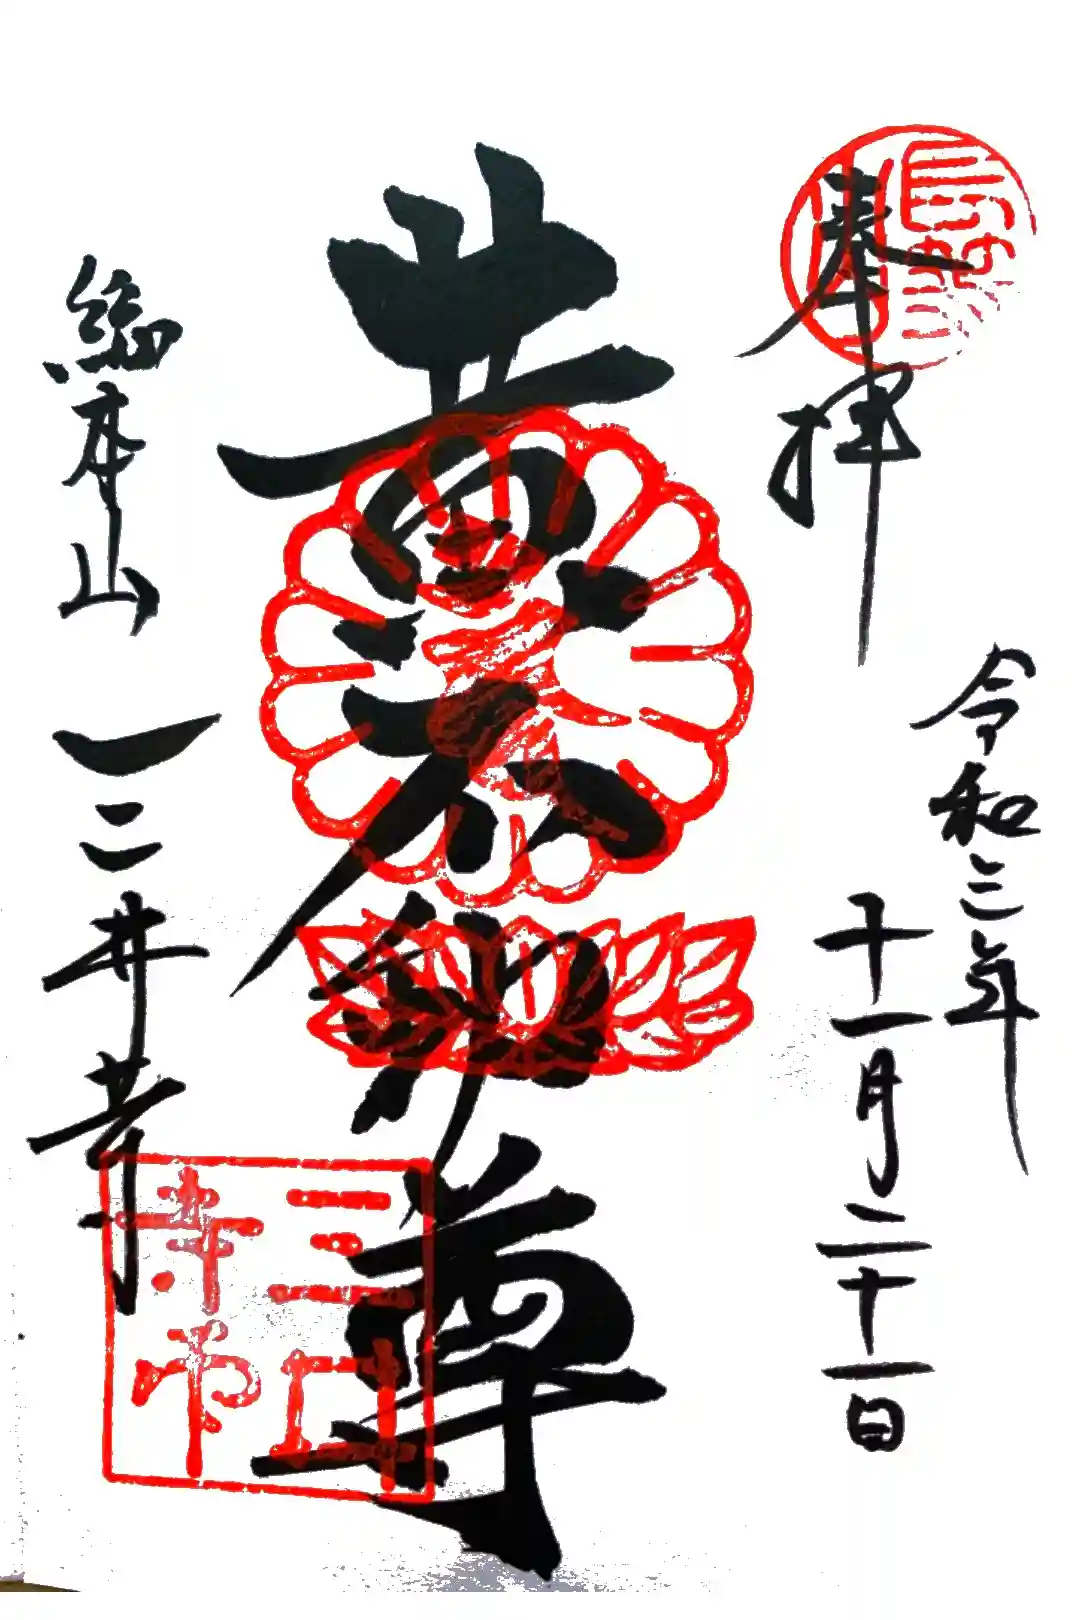 奉拝
長等山
令和三年
十一月二十一日
黄不動尊
総本山 三井寺
三井
寺印